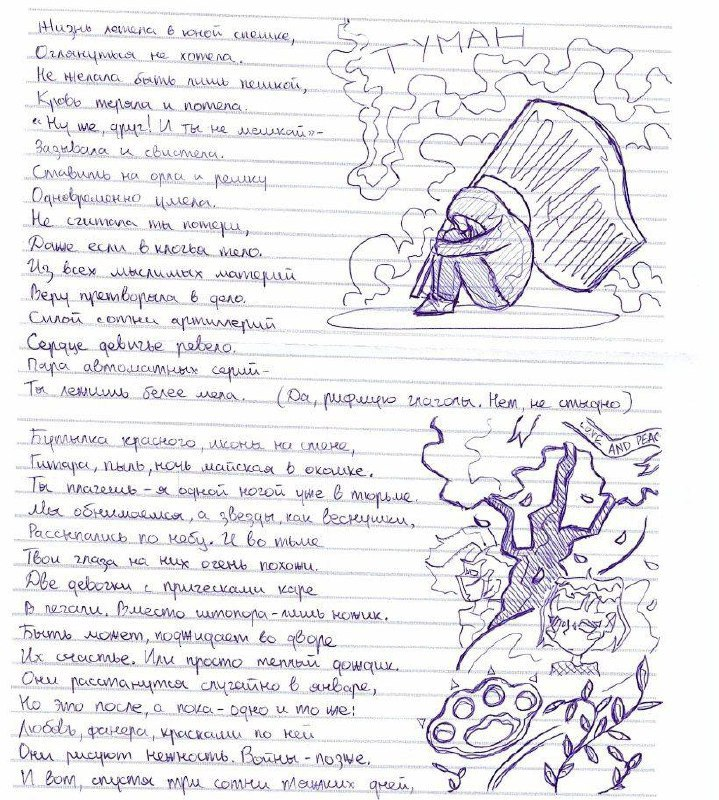 Жизнь летела в юной спешке,
Оглянуться не хотела.
Не желала быть лишь пешкой,
Кровь теряла и потела.
"Ну же, друг! И ты не мешкай"-
Зазывала и свистела.
Ставить на орла и решку
Одновременно умела.
Не считала ты потери,
Даже если в клочья тело.
Из всех мыслимых материй
Веру претворяла в дело.
Силой сотни артиллерий
Сердце девичье ревело.
Пара автоматных серий-
Ты лежишь белее мела. (Да, рифмую глаголы. Нет, не стыдно)
ТУМАН
Бутылка красного, иконы на стене,
Гитара, пыль, ночь майская в окошке.
Ты плачешь-я одной ногой уже в тюрьме.
Мы обнимаемся, а звезды, как веснушки,
Рассыпались по небу. И во тьме
Твои глаза на них очень похожи.
Две девочки с прическами каре
В печали. Вместо штопора-лишь ножик.
Быть может, поджидает во дворе
Их счастье. Или просто теплый дождик.
Они расстанутся случайно в январе,
Но это после, а пока-одно и то же:
Любовь, фанера, красками по ней
Они рисуют нежность. Войны-позже.
И вот, спустя три сотни тяжких дней,
LOVE AND PEAC